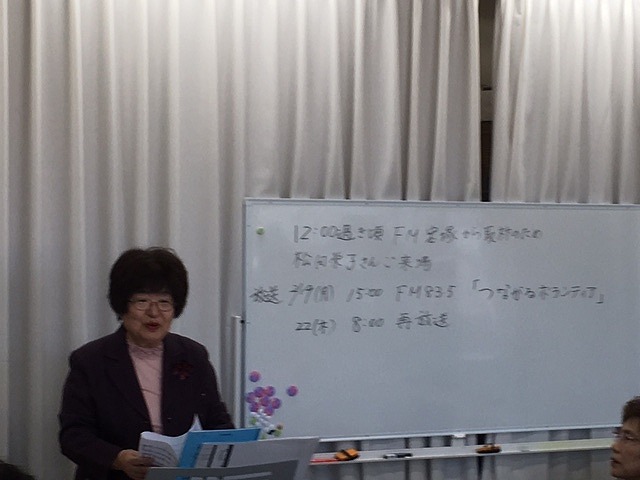 12:00過ぎ頃 FM宝塚から取材のため
松田栄子さんご来場
放送 2/19(月) 15:00 FM83.5 「つながるボランティア」
22(木) 8:00 再放送